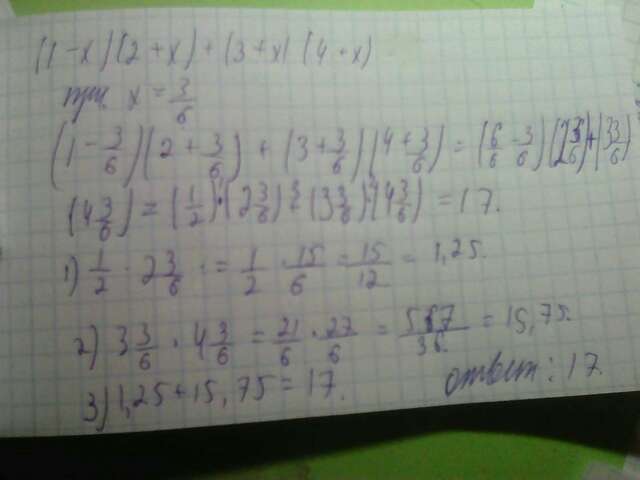 (1-x)(2+x)+(3+x)(4+x)
при x=3/6
(1-3/6)(2+3/6)+(3+3/6)(4+3/6)=(6/6-3/6)(2 3/6)+(3 3/6)
(4 3/6)=(1/2)·(2 3/6)+(3 3/6)·(4 3/6)=17.
1) 1/2·2 3/6·=1/2·15/6=15/12=1,25.
2) 3 3/6·4 3/6=21/6·27/6=567/36=15,75.
3) 1,25+15,75=17. ответ: 17.